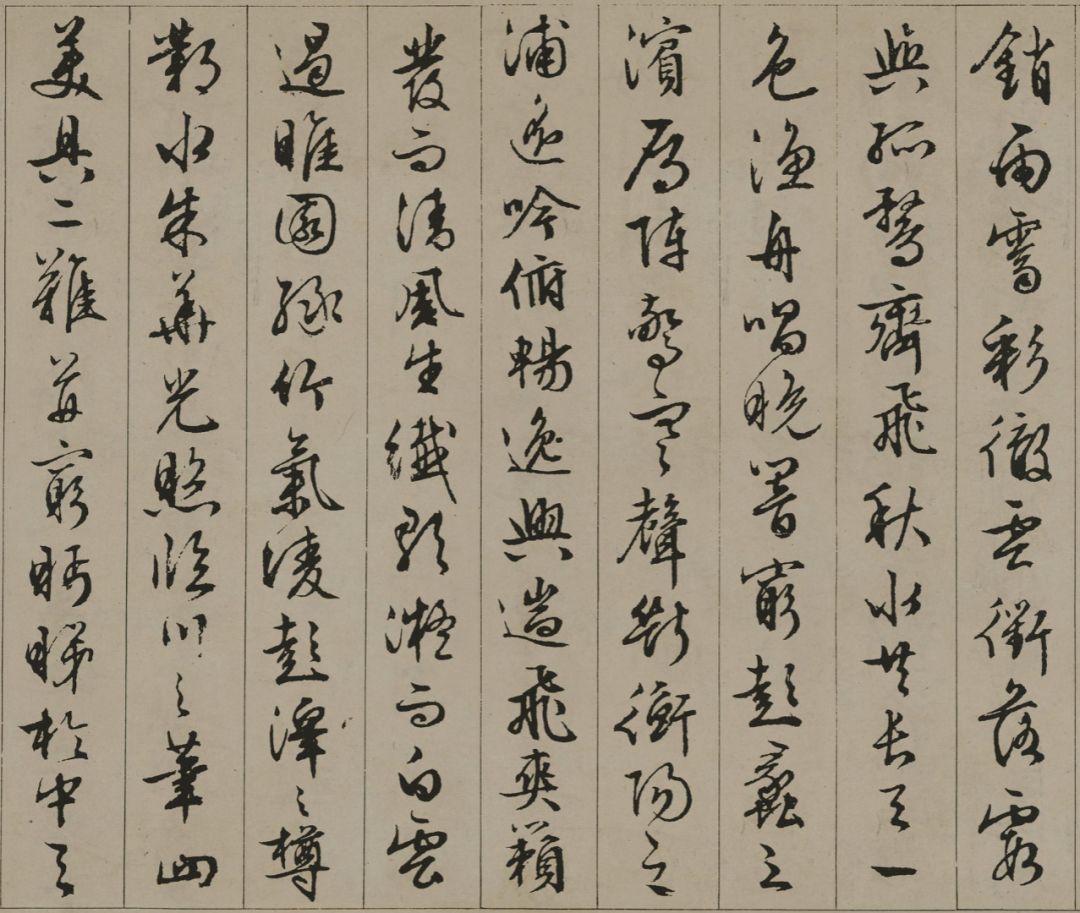 銷雨霽彩徹雲衢落霞
與孤鶩齊飛秋水共長天一
色漁舟唱晚響窮彭蠡之
濱鴈陣驚寒聲斷衡陽之
浦遙吟俯暢逸興遄飛爽籟
發而清風生纖歌凝而白雲
遏睢園綠竹氣淩彭澤之樽
鄴水朱華光照臨川之筆四
美具二難并窮眄睇於中天